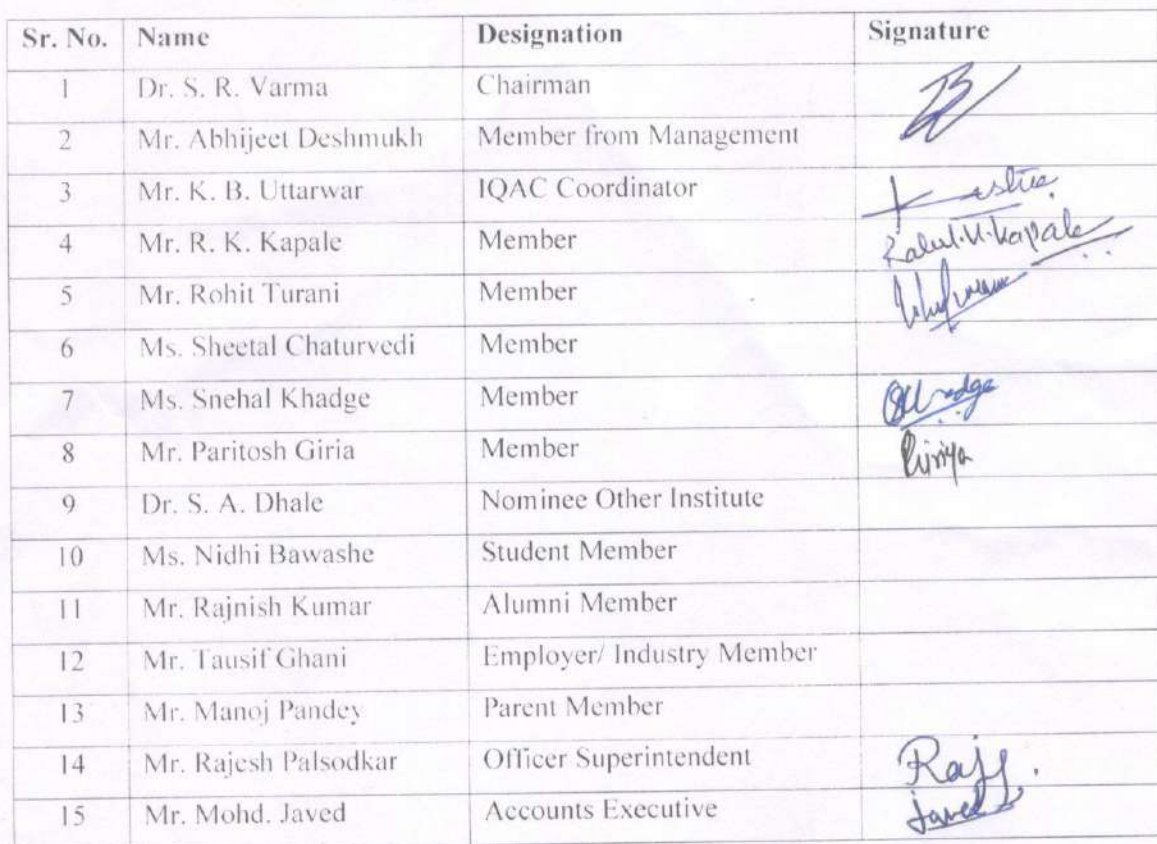 Sr. No. Name Designation Signature
1 Dr. S. R. Varma Chairman
2 Mr. Abhijeet Deshmukh Member from Management
3 Mr. K. B. Uttarwar IQAC Coordinator
4 Mr. R. K. Kapale Member Rahul.K.Kapale
5 Mr. Rohit Turani Member
6 Ms. Sheetal Chaturvedi Member
7 Ms. Snehal Khadge Member
8 Mr. Paritosh Giria Member
9 Dr. S. A. Dhale Nominee Other Institute
10 Ms. Nidhi Bawashe Student Member
11 Mr. Rajnish Kumar Alumni Member
12 Mr. Tausif Ghani Employer/ Industry Member
13 Mr. Manoj Pandey Parent Member
14 Mr. Rajesh Palsodkar Officer Superintendent
15 Mr. Mohd. Javed Accounts Executive Javed